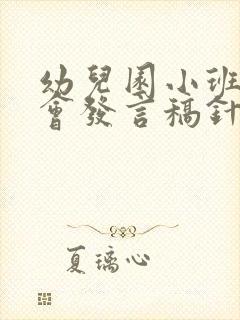 幼兒園小班
會發言稿針
夏璃心